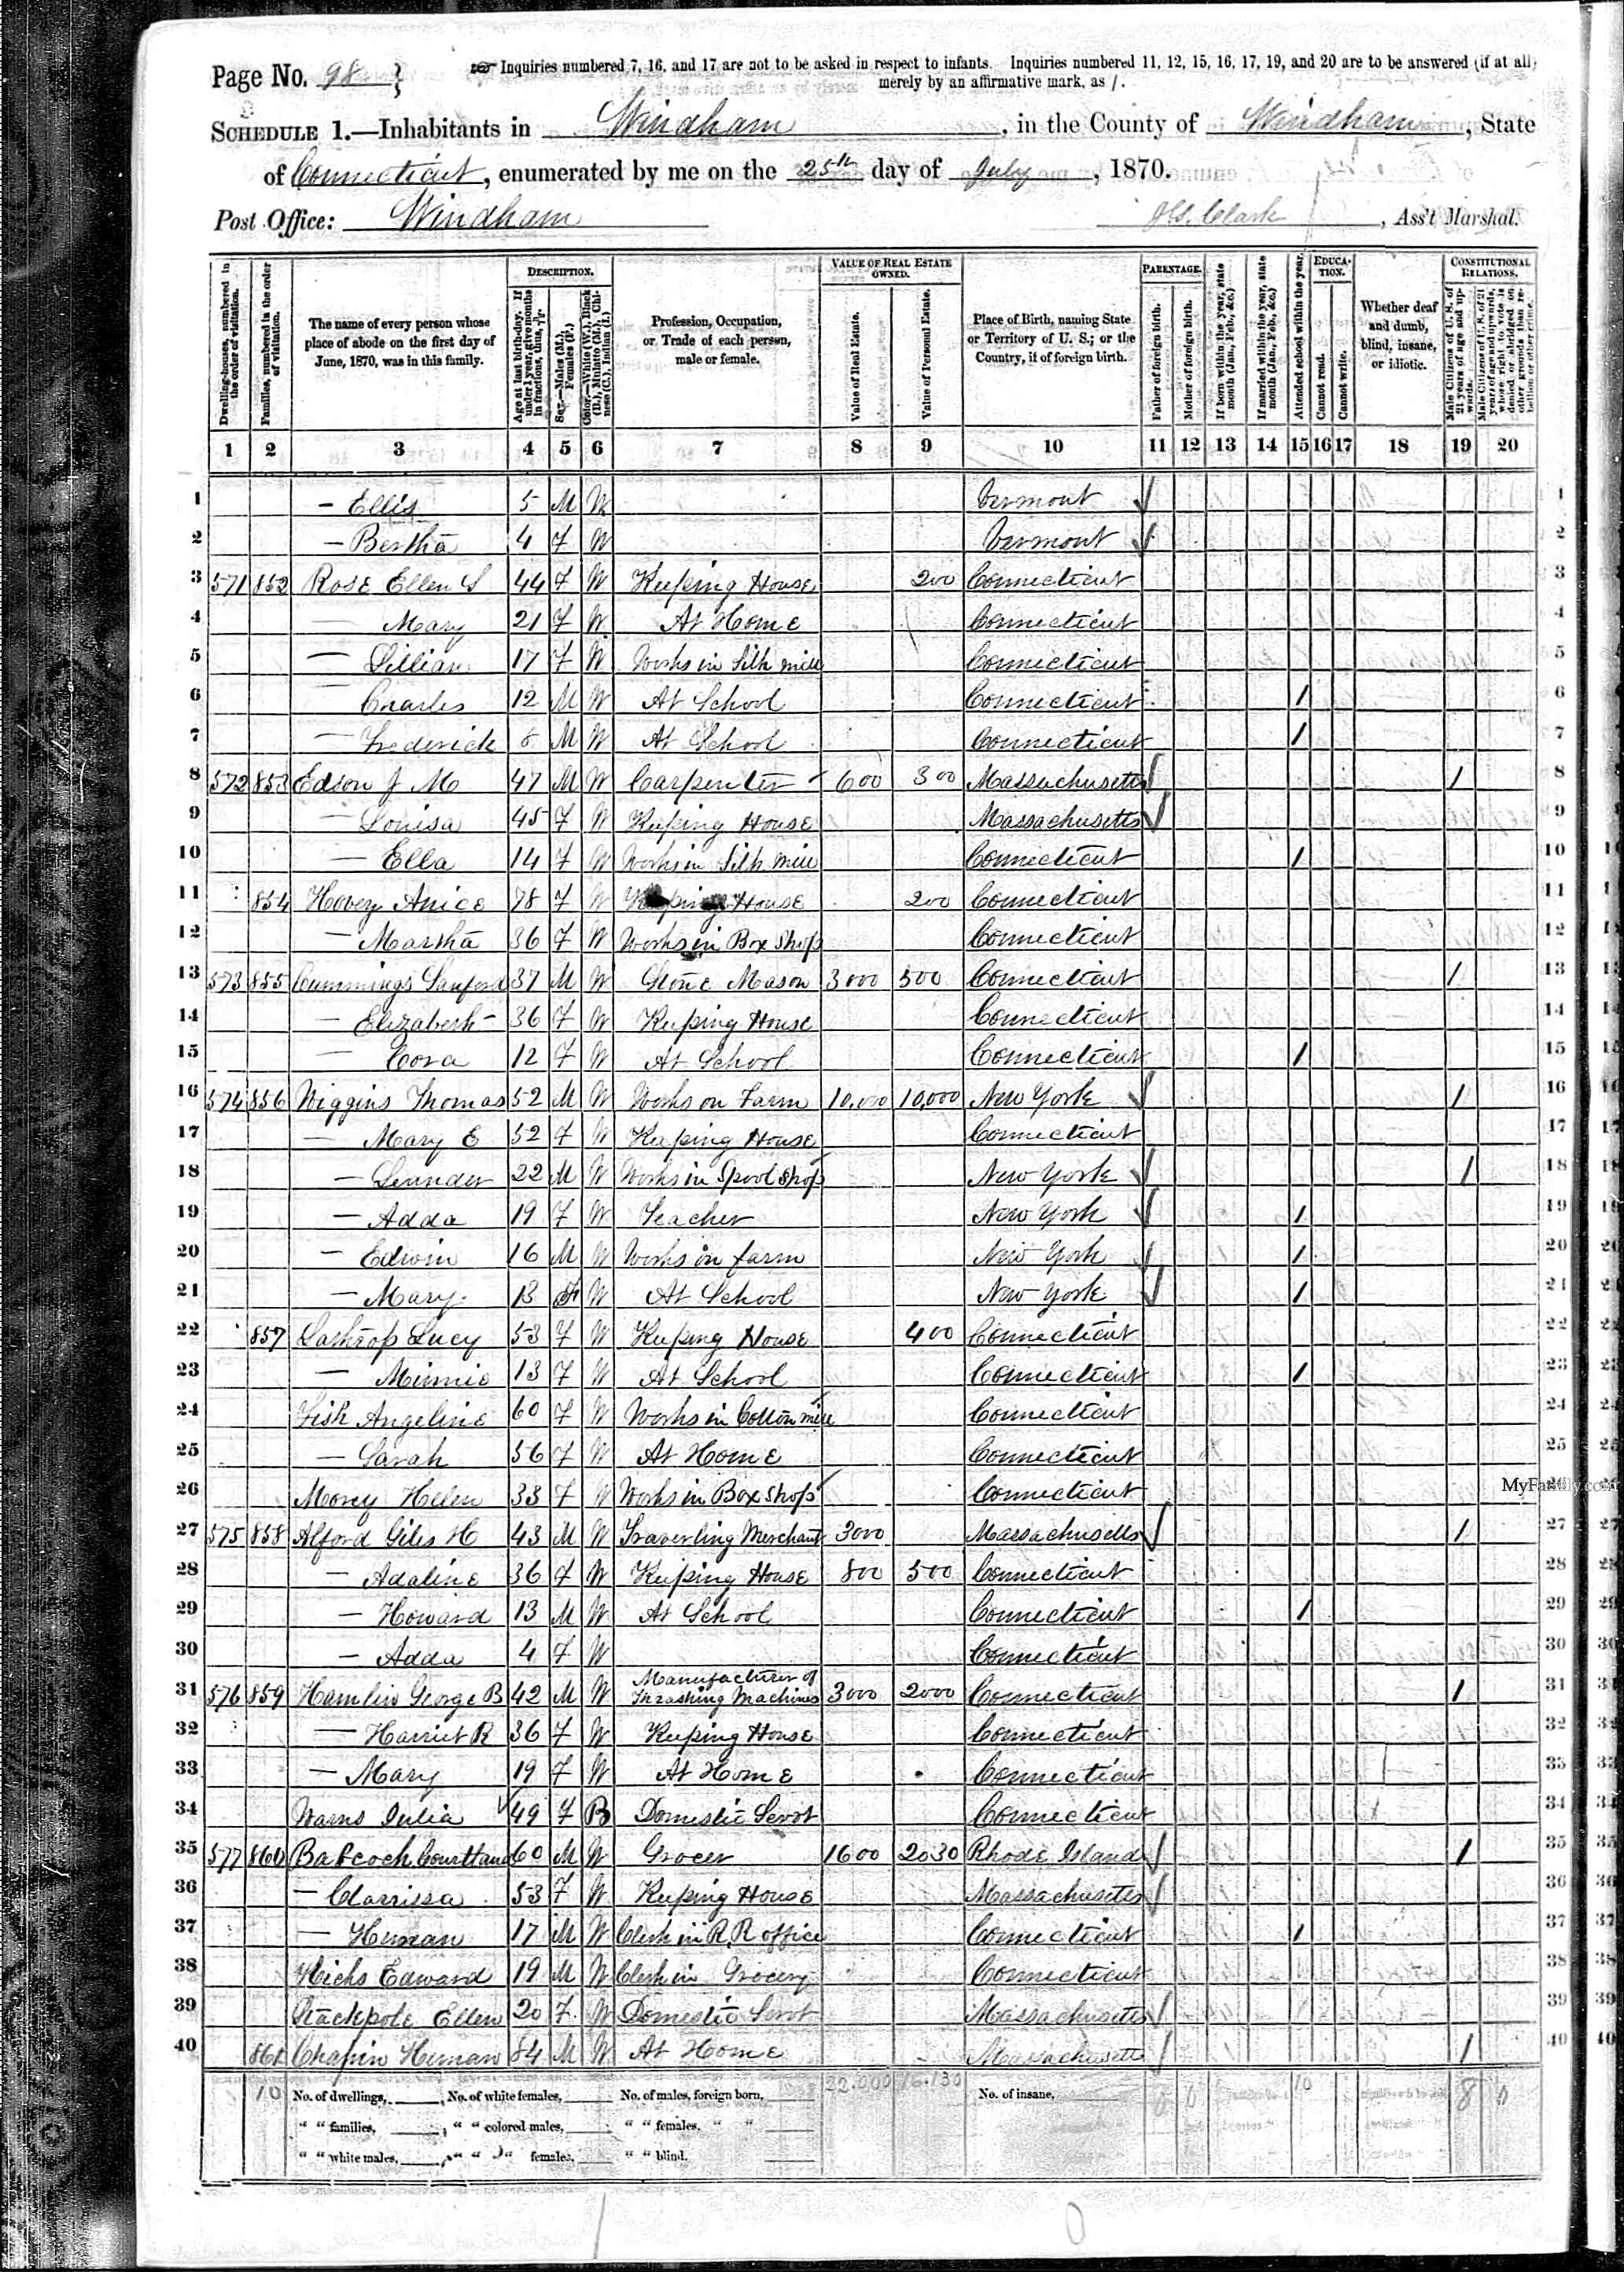 Page No. 98
Inquiries numbered 7, 16, and 17 are not to be asked in respect to infants. Inquiries numbered 11, 12, 15, 16, 17, 19, and 20 are to be answered (if at all)
merely by an affirmative mark, as /.
SCHEDULE 1.—Inhabitants in Windham, in the County of Windham, State
of Connecticut, enumerated by me on the 25th day of July, 1870.
Post Office: Windham Clark, Ass't Marshal.
Dwelling-houses, numbered in the order of visitation.
Families, numbered in the order of visitation.
The name of every person whose place of abode on the first day of June, 1870, was in this family.
DESCRIPTION.
Age at last birth-day. If under 1 year, give months in fractions, thus, 3/12
Sex.—Males (M.), Females (F.)
Color.—White (W.), Black (B.), Mulatto (M.), Chinese (C.), Indian (I.)
Profession, Occupation, or Trade of each person, male or female.
VALUE OF REAL ESTATE OWNED.
Value of Real Estate.
Value of Personal Estate.
Place of Birth, naming State or Territory of U. S.; or the Country, if of foreign birth.
PARENTAGE.
Father of foreign birth.
Mother of foreign birth.
If born within the year, state month (Jan., Feb., &c.)
If married within the year, state month (Jan., Feb., &c.)
Attended school within the year.
EDUCATION.
Cannot read.
Cannot write.
Whether deaf and dumb, blind, insane, or idiotic.
CONSTITUTIONAL RELATIONS.
Male Citizens of U. S. of 21 years of age and upwards.
Male Citizens of U. S. of 21 years of age and upwards, whose right to vote is denied or abridged on other grounds than rebellion or other crime.
1 2 3 4 5 6 7 8 9 10 11 12 13 14 15 16 17 18 19 20
1 — Ellis 5 M W Vermont 1
2 — Bertha 4 F W Vermont 2
3 571 852 Rose Ellen S 44 F W Keeping House 200 Connecticut 3
4 — Mary 21 F W At Home Connecticut 4
5 — Lillian 17 F W Works in Silk mill Connecticut 5
6 — Charles 12 M W At School Connecticut / 6
7 — Frederick 8 M W At School Connecticut / 7
8 572 853 Edson J M 47 M W Carpenter 600 300 Massachusetts / 8
9 — Louisa 45 F W Keeping House Massachusetts 9
10 — Ella 14 F W Works in Silk mill Connecticut / 10
11 854 Hovey Anice 78 F W Keeping House 200 Connecticut 11
12 — Martha 36 F W Works in Box Shop Connecticut 12
13 573 855 Cummings Sanford 37 M W Stone Mason 3000 500 Connecticut / 13
14 — Elizabeth 36 F W Keeping House Connecticut 14
15 — Cora 12 F W At School Connecticut / 15
16 574 856 Wiggins Thomas 52 M W Works on Farm 10,000 10,000 New York / 16
17 — Mary E 52 F W Keeping House Connecticut 17
18 — Leander 22 M W Works in Spool Shop New York / 18
19 — Adda 19 F W Teacher New York / 19
20 — Edwin 16 M W Works on farm New York / 20
21 — Mary 13 F W At School New York / 21
22 857 Lathrop Lucy 53 F W Keeping House 400 Connecticut 22
23 — Minnie 13 F W At School Connecticut / 23
24 Fish Angeline 60 F W Works in Cotton mill Connecticut 24
25 — Sarah 56 F W At Home Connecticut 25
26 Morey Hellen 33 F W Works in Box Shop Connecticut 26
MyFamily.com
27 575 858 Alford Giles H 43 M W Traverling Merchant 3000 Massachusetts / 27
28 — Adaline 36 F W Keeping House 800 500 Connecticut 28
29 — Howard 13 M W At School Connecticut / 29
30 — Adda 4 F W Connecticut 30
31 576 859 Hamlin George B 42 M W Manufacturer of Thrashing Machines 3000 2000 Connecticut / 31
32 — Harriet R 36 F W Keeping House Connecticut 32
33 — Mary 19 F W At Home Connecticut 33
34 Julia 49 F B Domestic Servt Connecticut 34
35 577 860 Babcock Courtland 60 M W Grocer 1600 2030 Rhode Island / 35
36 — Clarrissa 53 F W Keeping House Massachusetts 36
37 — Human 17 M W Clerk in R.R office Connecticut / 37
38 Hicks Edward 19 M W Clerk in Grocery Connecticut 38
39 Stackpole Ellen 20 F W Domestic Servt Massachusetts 39
40 861 Chapin Human 84 M W At Home Massachusetts / 40
10 No. of dwellings, No. of white females, No. of males, foreign born, 22.000 16.130 No. of insane, 0 0 10 8 0
" " families, " " colored males, " " females, " "
" " white males, " " " females, " " blind.